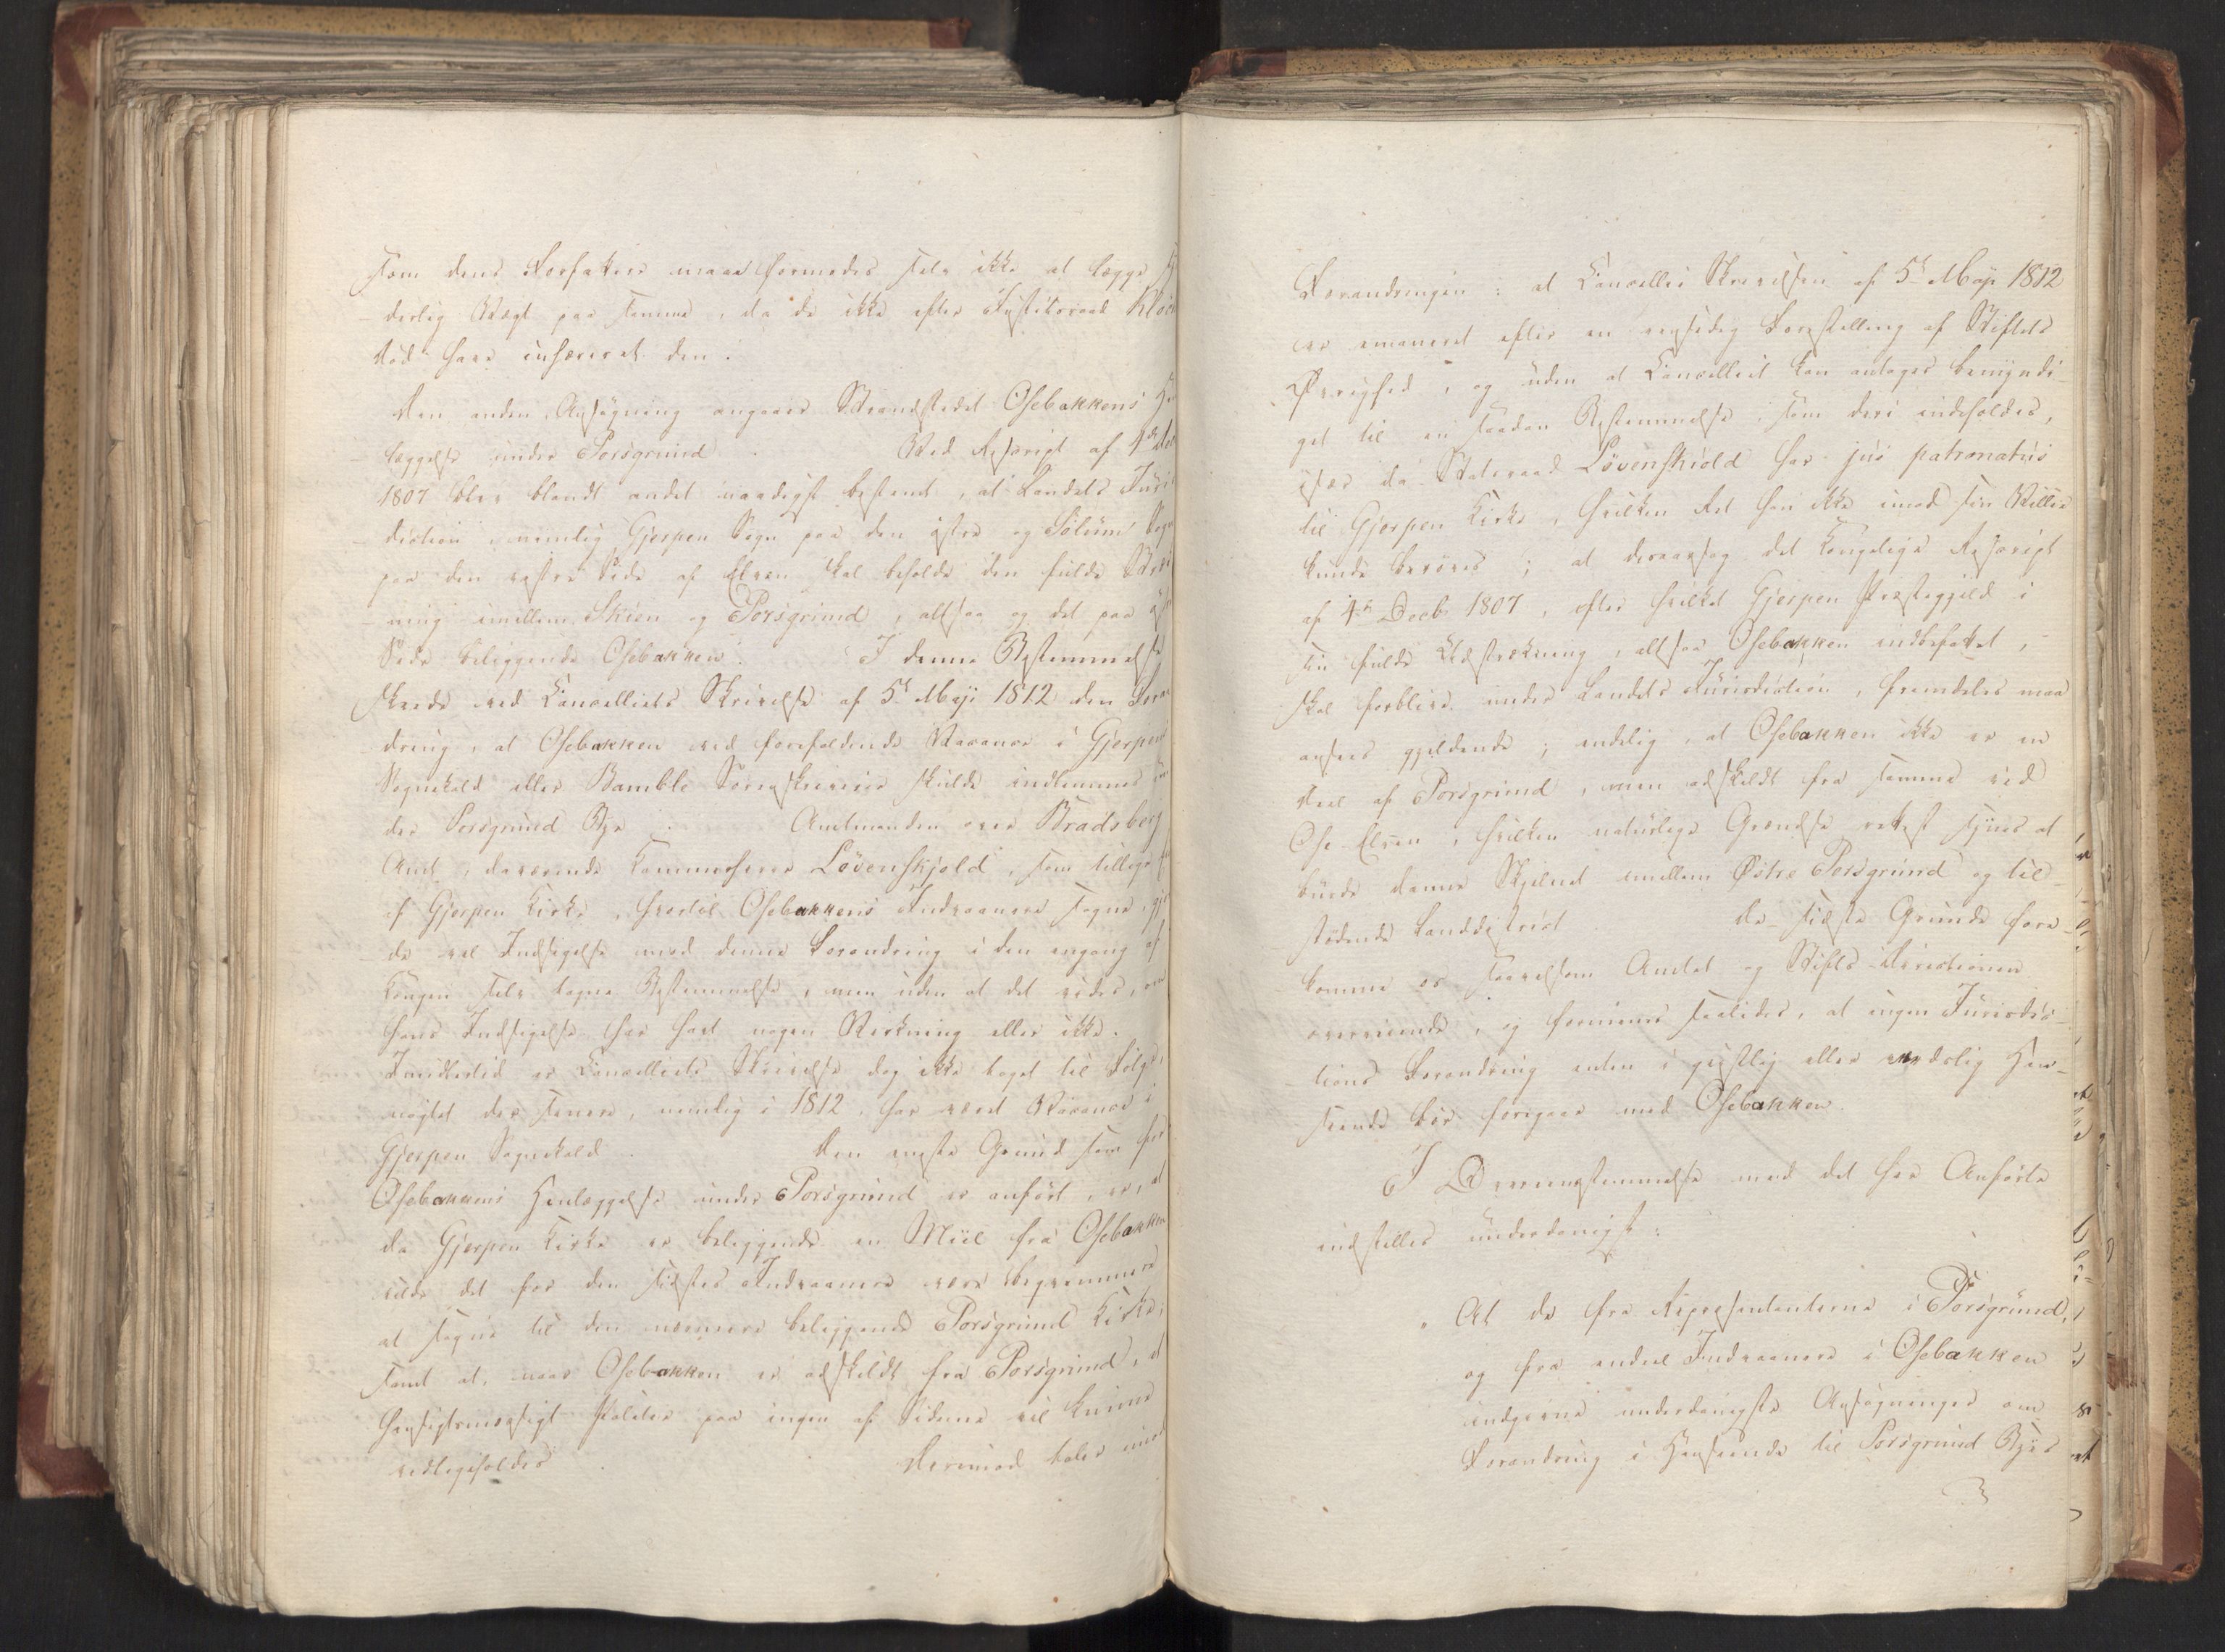 som dens Forfattere maae formodes selv ikke at lægge
derlig Vægt paa samme, da de ikke efter Justitsraad
Død have insereret den.
Den anden Ansøgning angaaer Strandstedet Osebakkens
læggelse under Porsgrund. Ved Rescript af 4de
1807 blev blandt andet naadigst bestemt, at Landets Juris
diction, nemlig Gjerpen Sogn paa den østre og Solum
paa den vestre Side af Elven skal beholde den fulde
ning imellem Skien og Porsgrund, altsaa og det paa
Side beliggende Osebakken. I denne Bestemmelse
skeede ved Cancelliets Skrivelse af 5te Maji 1812 den
dring, at Osebakken ved forefaldende Vacance i Gjerpens
Sognekald eller Bamble Sorenskriverie skulde indlemmes
der Porsgrund Bye. Amtmanden over Bradsberg
Amt, daværende Kammerherre Lövenskjold, som tillige
af Gjerpen Kirke, hvortil Osebakkens Indvaanere søgne,
de vel Indsigelse mod denne Forandring i den engang af
Kongen selv tagne Bestemmelse, men uden at det vides, om
hans Indsigelse har havt nogen Virkning eller ikke.
Imidlertid er Cancelliets Skrivelse dog ikke taget til Følge,
uagtet der senere, nemlig i 1812, har været Vacance i
Gjerpen Sognekald. Den eneste Grund som for
Osebakkens Henlæggelse under Porsgrund er anført, er, at
da Gjerpen Kirke er beliggende en Miil fra Osebakken
vilde det for den sidstes Indvaanere være beqvemmere
at søgne til den nærmere beliggende Porsgrund Kirke,
samt at, naar Osebakken er adskildt fra Porsgrund, at
hensigtsmæssigt Politie paa ingen af Siderne vil kunne
vedligeholdes. Derimod taler imod
Forandringen: at Cancellie Skrivelsen af 5te Maji 1812
er emaneret efter en eensidig Forestilling af Stiftets
Øvrighed, og uden at Cancelliet kan antages bemyndi-
get til en saadan Bestemmelse, som deri indeholdes,
især da Statsraad Lövenskiold har jus patronatus
til Gjerpen Kirke, hvilken Ret han ikke imod sin Villie
kunde berøves; at desaarsag det Kongelige Rescript
af 4de Decbr 1807, efter hvilket Gjerpen Præstegjeld i
sin fulde Udstrækning, altsaa Osebakken indbefattet,
skal forblive under Landets Jurisdiction, fremdeles maa
ansees gjeldende; endelig, at Osebakken ikke er en
Deel af Porsgrund, men adskildt fra samme ved
Ose-Elven, hvilken naturlige Grændse rettest synes at
burde danne Skjelnet imellem Østre Porsgrund og til-
stødende Landdistrict. De sidste Grunde fore-
komme os saavelsom Amtet og Stifts-Directionen
overveiende, og formenes saaledes, at ingen Jurisdic-
tions Forandring enten i geistlig eller verdslig Hen-
seende bør foregaae med Osebakken.
I Overeensstemmelse med det her Anførte
indstilles underdanigst:
"At de fra Repræsentanterne i Porsgrund,
og fra endeel Indvaanere i Osebakken
indgivne underdanigste Ansøgninger om
Forandring i Henseende til Porsgrund Byes